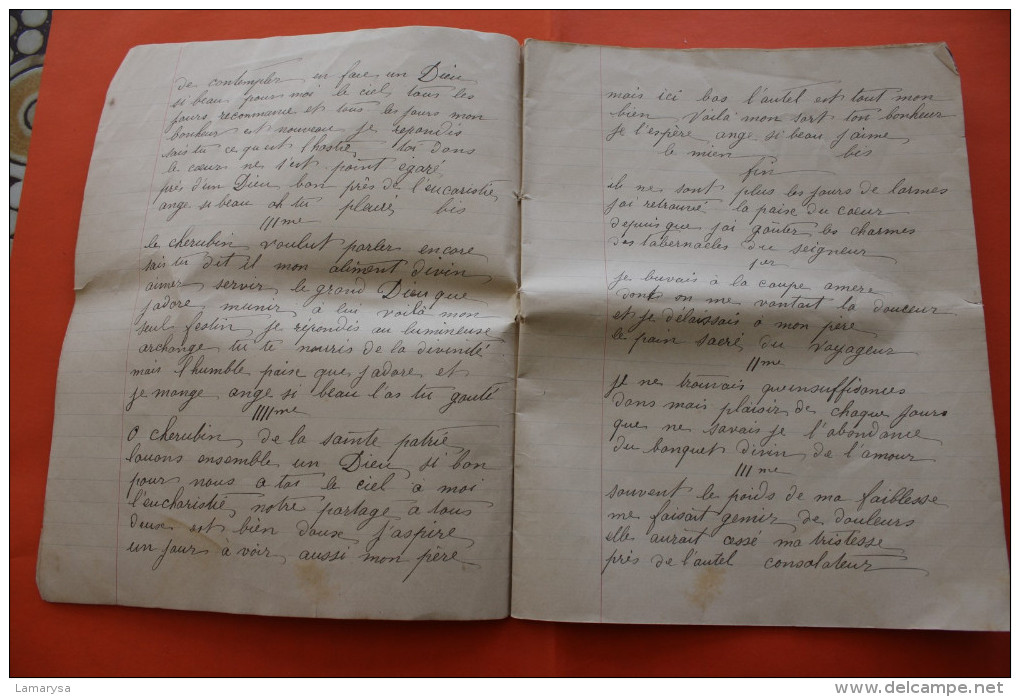 de contempler en face un Dieu
si beau pour moi le ciel tous les
jours recommance et tous les jours mon
bonheur est nouveau je repondis
sais tu ce qu'est l'hostie toi dons
le cœurs ne s'est point égaré
près d'un Dieu bon près de l'eucaristie
ange si beau as tu pleuré bis
IIIme
le cherubin voulut parler encore
sais tu dit il mon aliment divin
aimer servir le grand Dieu que
j'adore m'unir à lui voilà mon
seul festin je répondis au lumineuse
archange tu te nouris de la divinité
mais l'humble paise que j'adore et
je mange ange si beau l'as tu gouté
IIIIme
O cherubin de la sainte patrie
louons ensemble un Dieu si bon
pour nous a toi le ciel à moi
l'eucharistie notre partage à tous
deuse est bien douse j'aspire
un jours à voir aussi mon père
mais ici bas l'autel est tout mon
bien Voilà mon sort ton bonheur
je l'espère ange si beau j'aime
le mien bis
fin
ils ne sont plus les jours de larmes
j'ai retrouvé la paise du cœur
depuis que j'ai goûter les charmes
des tabernacles du seigneur
1er
je buvais à la coupe amere
dont on me vantait la douceur
et je délaissais à mon père
le pain sacré du voyageur
IIme
je ne trouvais qu'insuffisances
dans mais plaisir de chaque jours
que ne savais je l'abondance
du banquet divin de l'amour
IIIme
souvent le poids de ma faiblesse
me faisait gemir de douleurs
elle aurait cessé ma tristesse
près de l'autel consolateur
Lamarysa
www.delcampe.net